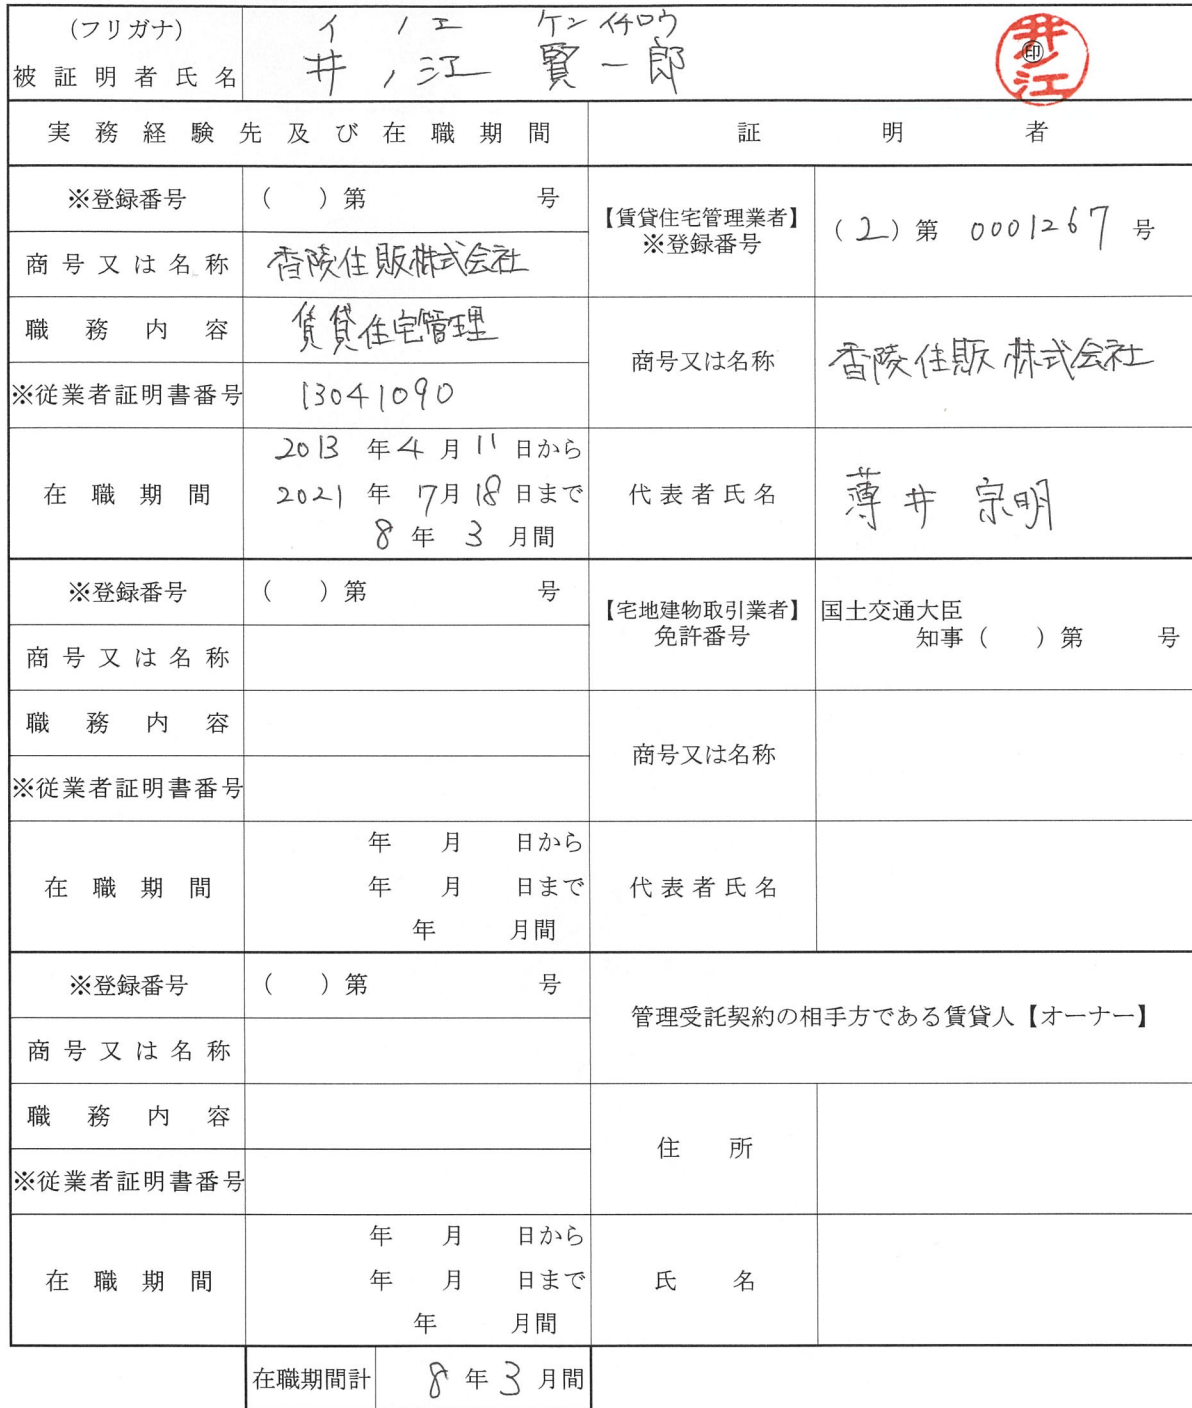 (フリガナ) イノエ ケンイチロウ
被証明者氏名 井ノ江 賢一郎 ㊞ 井ノ江
実務経験先及び在職期間 証明者
※登録番号 ( )第 号
【賃貸住宅管理業者】
※登録番号 (2)第 0001267 号
商号又は名称 香陵住販株式会社
職務内容 賃貸住宅管理
商号又は名称 香陵住販株式会社
※従業者証明書番号 13041090
在職期間
2013 年 4 月 11 日から
2021 年 7月 18 日まで
8 年 3 月間
代表者氏名 薄井 宗明
※登録番号 ( )第 号
【宅地建物取引業者】
免許番号
国土交通大臣
知事( )第 号
商号又は名称
職務内容
商号又は名称
※従業者証明書番号
在職期間
年 月 日から
年 月 日まで
年 月間
代表者氏名
※登録番号 ( )第 号
管理受託契約の相手方である賃貸人【オーナー】
商号又は名称
職務内容
住所
※従業者証明書番号
在職期間
年 月 日から
年 月 日まで
年 月間
氏名
在職期間計 8 年 3 月間